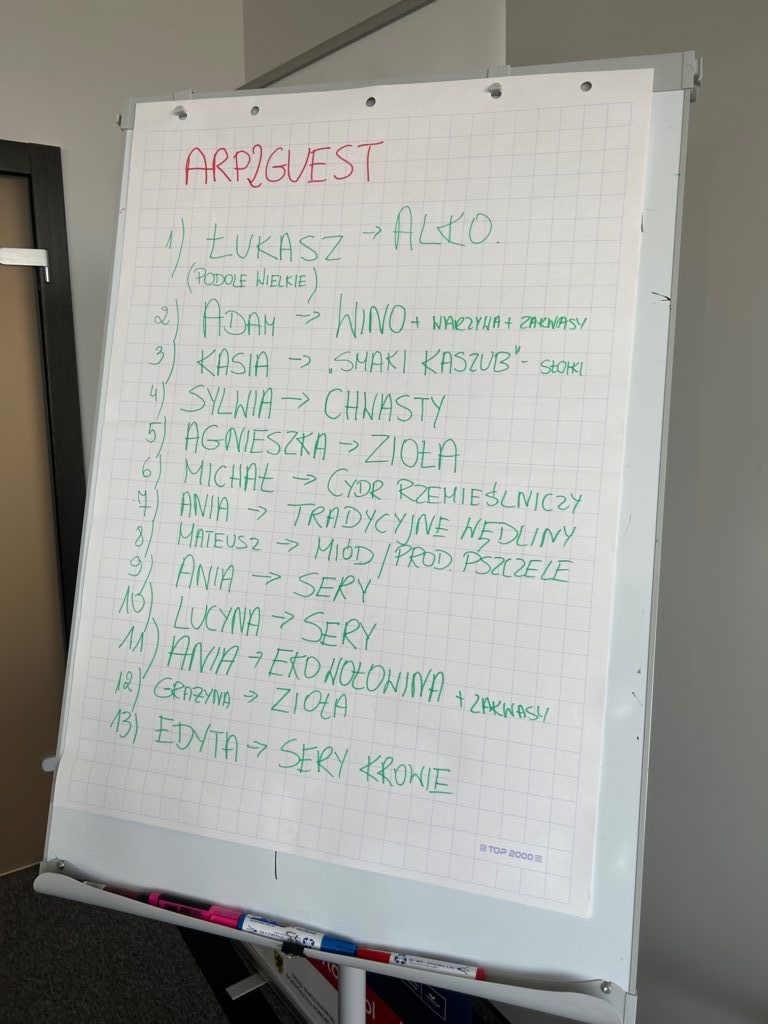 ARP2GUEST
1) ŁUKASZ → ALKO.
(PODOLE WIELKIE)
2) ADAM → WINO + WARZYWA + ZAKWASY
3) KASIA → „SMAKI KASZUB" - SŁOIKI
4) SYLWIA → CHWASTY
5) AGNIESZKA → ZIOŁA
6) MICHAŁ → CYDR RZEMIEŚLNICZY
7) ANIA → TRADYCYJNE WĘDLINY
8) MATEUSZ → MIÓD / PROD. PSZCZELE
9) ANIA → SERY
10) LUCYNA → SERY
11) ANIA → EKO WOŁOWINA + ZAKWASY
12) GRAŻYNA → ZIOŁA
13) EDYTA → SERY KROWIE
TOP 2000